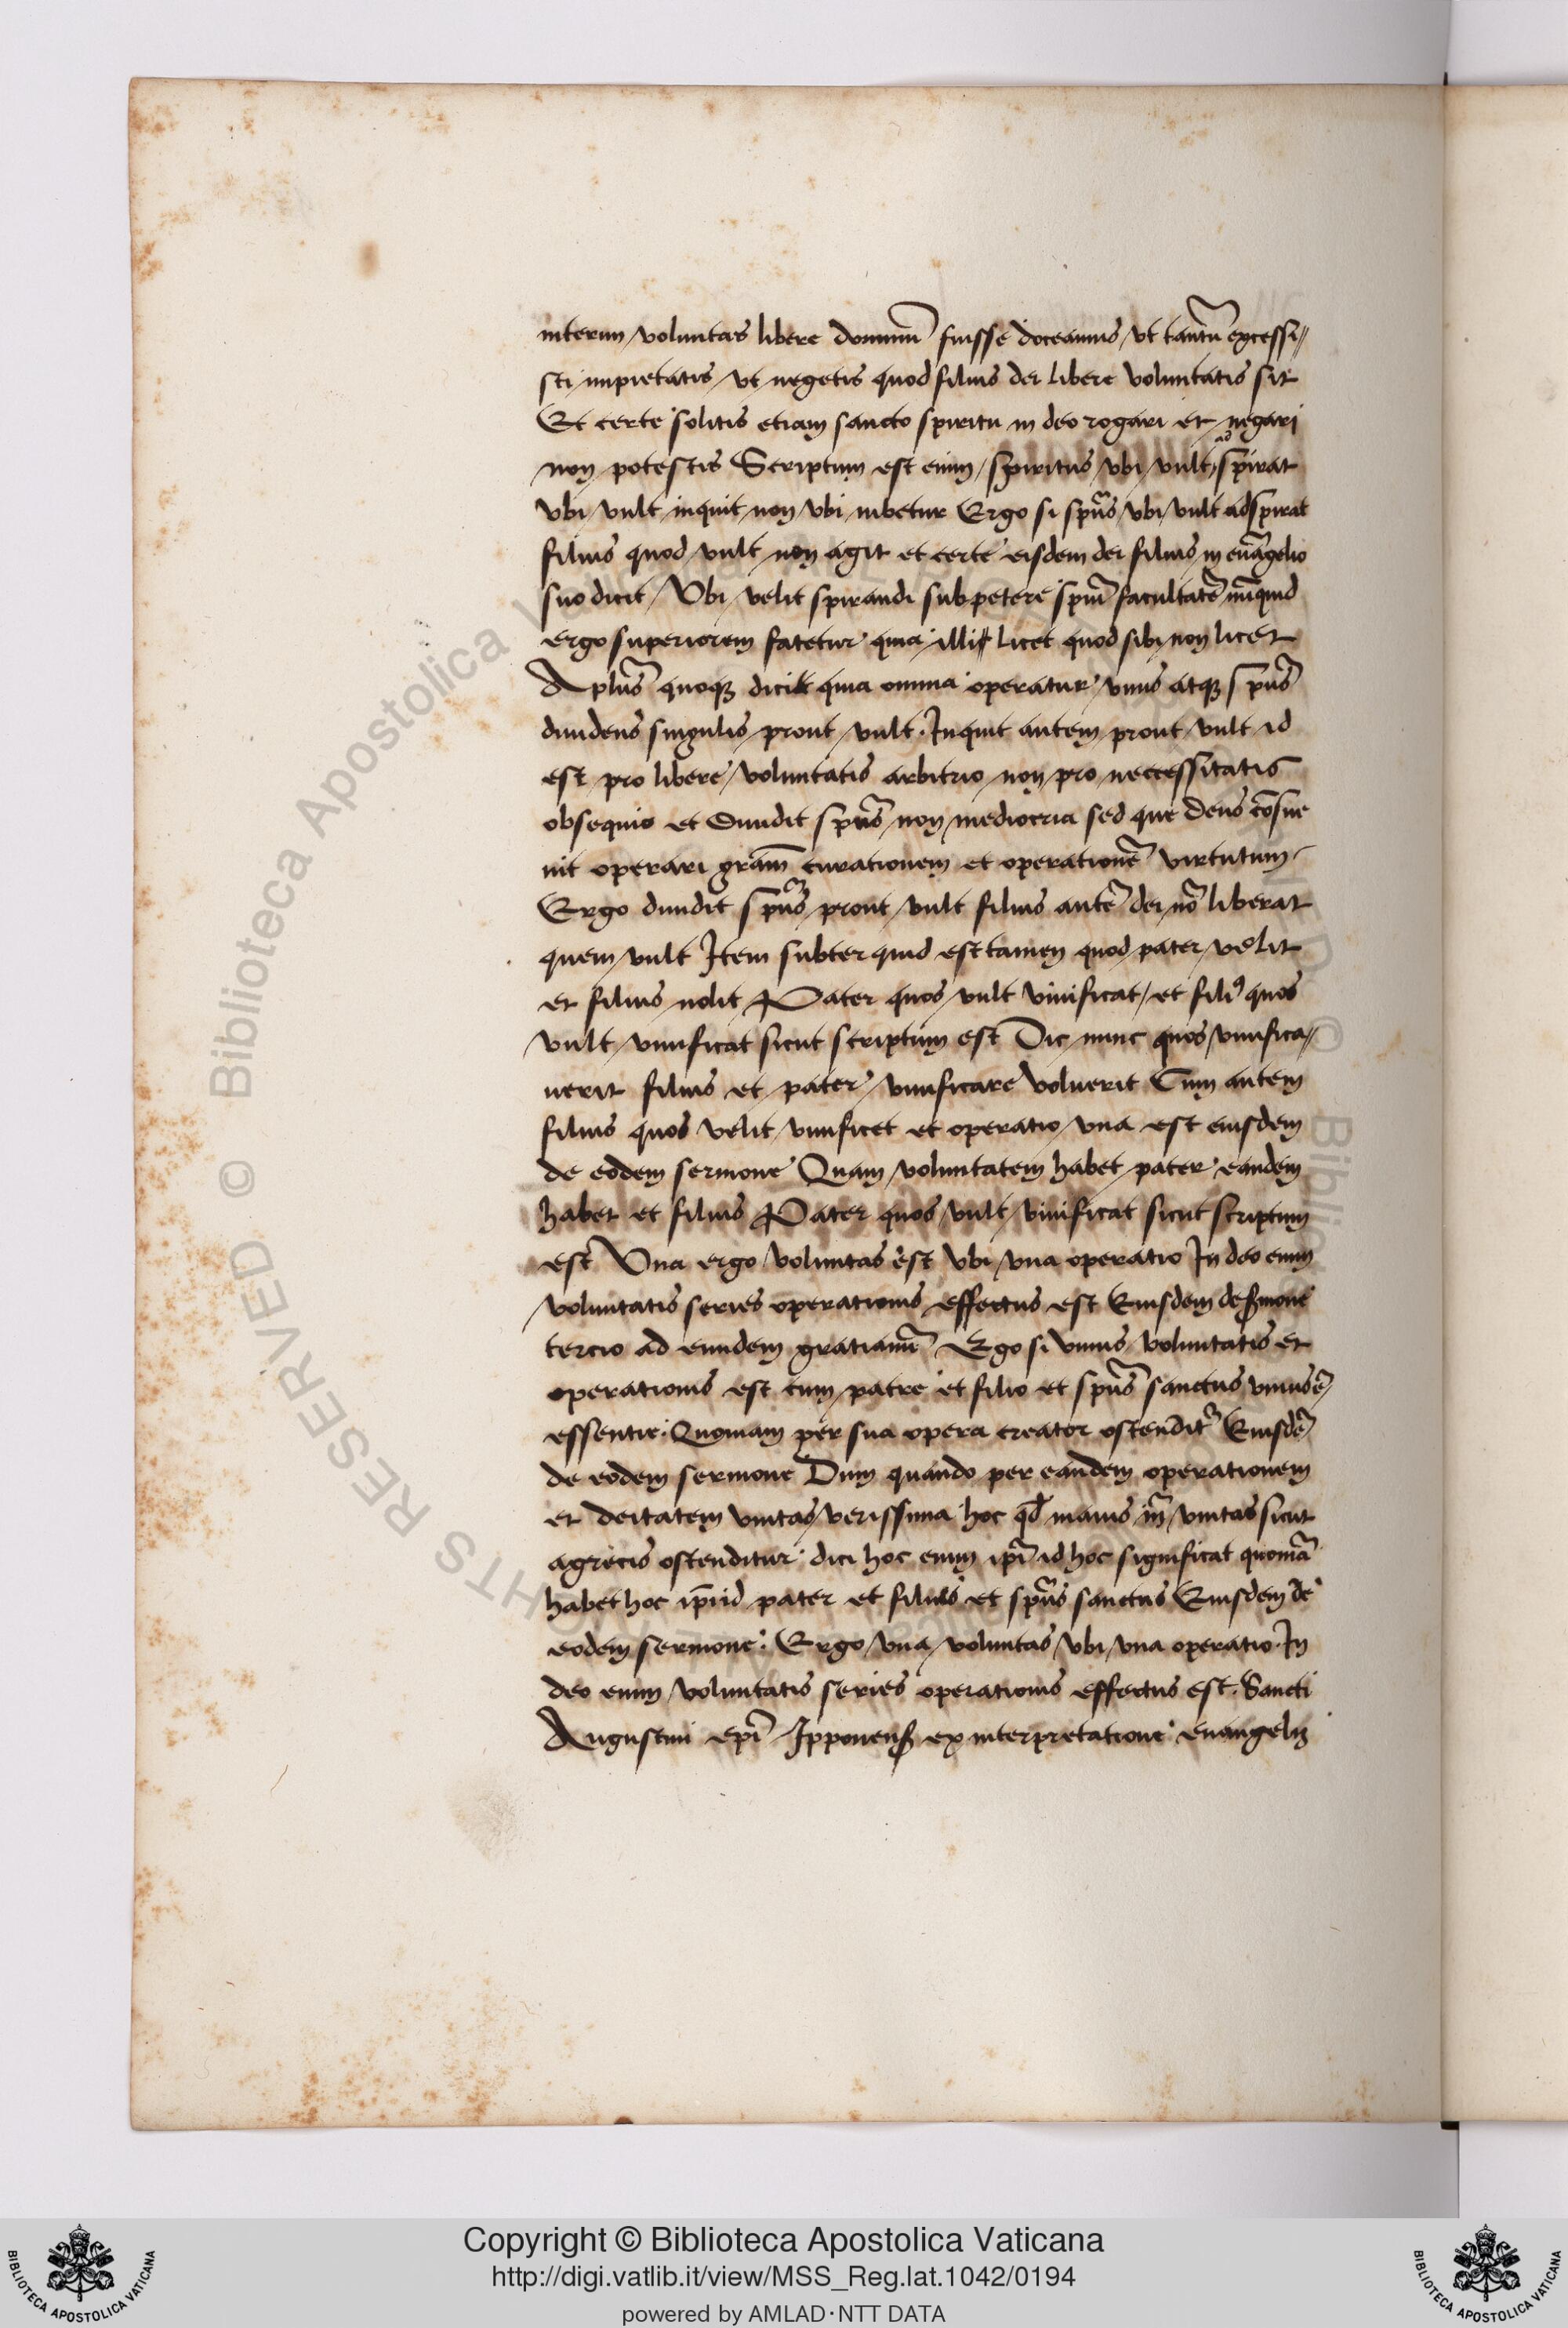 interim voluntas libere dominũ fuisse doceamus vt tantũ excessi
sti impietatis vt negetis quod filius dei libere voluntatis sit
Et certe solitis etiam sancto spiritu in deo rogari et negari
non potestis Scriptum est enim spiritus vbi vult adspirat
vbi vult inquit non vbi iubetur Ergo si spũs vbi vult adspirat
filius quod vult non agit et certe eisdem dei filius in euãgelio
suo dicit Vbi velit spirandi subpetere spũi facultatẽ nũquid
ergo superiorem fatetur quia illi licet quod sibi non licet
Aplũs quoqꝫ dicit quia omnia operatur vnus atqꝫ spũs
diuidens singulis prout vult. Inquit autem prout vult id
est pro libere voluntatis arbitrio non pro neccessitatis
obsequio et Diuidit spũs non mediocria sed que deus cõsue
uit operari grãm curationem et operationẽ virtutum
Ergo diuidit spũs prout vult filius autẽ dei nõ liberat
quem vult Item subter quid est tamen quod pater velit
et filius nolit Pater quos vult viuificat et fili9 quos
vult viuificat sicut scriptum est Dic nunc quos viuifica
uerit filius et pater viuificare voluerit Cum autem
filius quos velit viuificet et operatio vna est eiusdem
de eodem sermone Quam voluntatem habet pater eandem
habet et filius Pater quos vult viuificat sicut scriptum
est Vna ergo voluntas est vbi vna operatio In deo enim
voluntatis series operationis effectus est Eiusdem de sermone
tercio ad eundem gratianũ Ergo si vnius voluntatis et
operationis est cum patre et filio et spũs sanctus vnius ẽ
essentie. Quoniam per sua opera creator ostendit Eiusdẽ
de eodem sermone Dum quando per eandem operationem
et deitatem vnitas verissima hoc qđ maius vnitas sicut
agrecis ostenditur dici hoc enim ipĩ id hoc significat quoniã
habet hoc ipĩ id pater et filius et spũs sanctus Eiusdem de
eodem sermone: Ergo vna voluntas vbi vna operatio. In
deo enim voluntatis series operationis effectus est. Sancti
Augustini epĩ Ipponenẞ ex interpretatione euangelij
Copyright © Biblioteca Apostolica Vaticana
http://digi.vatlib.it/view/MSS_Reg.lat.1042/0194
powered by AMLAD·NTT DATA
BIBLIOTECA APOSTOLICA VATICANA
BIBLIOTECA APOSTOLICA VATICANA